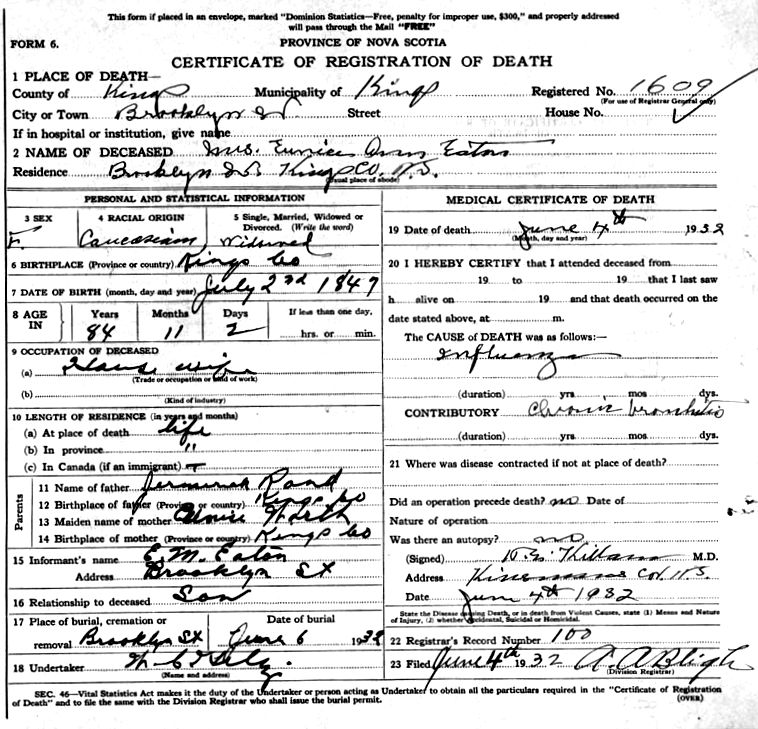 This form if placed in an envelope, marked "Dominion Statistics—Free, penalty for improper use, $300," and properly addressed
will pass through the Mail "FREE"
FORM 6.
PROVINCE OF NOVA SCOTIA
CERTIFICATE OF REGISTRATION OF DEATH
1 PLACE OF DEATH—
County of Kings Municipality of Kings Registered No. 1609
(For use of Registrar General only)
City or Town Brooklyn St Street House No.
If in hospital or institution, give name
2 NAME OF DECEASED Mrs. Eunice Ann Eaton
Residence Brooklyn St Kings Co. N.S.
(Usual place of abode)
PERSONAL AND STATISTICAL INFORMATION
3 SEX 4 RACIAL ORIGIN 5 Single, Married, Widowed or Divorced. (Write the word)
F. Caucasian Widowed
6 BIRTHPLACE (Province or country) Kings Co
7 DATE OF BIRTH (month, day and year) July 2nd 1847
8 AGE IN Years Months Days If less than one day,
84 11 2 hrs. or min.
9 OCCUPATION OF DECEASED
(a) House wife
(Trade or occupation or kind of work)
(b)
(Kind of industry)
10 LENGTH OF RESIDENCE (in years and months)
(a) At place of death life
(b) In province "
(c) In Canada (if an immigrant)
Parents
11 Name of father Rand
12 Birthplace of father (Province or country) Kings Co
13 Maiden name of mother North
14 Birthplace of mother (Province or country) Kings Co
15 Informant's name E. M. Eaton
Address Brooklyn St
16 Relationship to deceased Son
17 Place of burial, cremation or removal Brooklyn St Date of burial June 6 1932
18 Undertaker
(Name and address)
MEDICAL CERTIFICATE OF DEATH
19 Date of death June 4th 1932
(Month, day and year)
20 I HEREBY CERTIFY that I attended deceased from
19 to 19 that I last saw
h alive on 19 and that death occurred on the
date stated above, at m.
The CAUSE of DEATH was as follows:—
Influenza
(duration) yrs. mos. dys.
CONTRIBUTORY Chronic bronchitis
(duration) yrs. mos. dys.
21 Where was disease contracted if not at place of death?
Did an operation precede death? no Date of
Nature of operation
Was there an autopsy? no
(Signed) Killam M.D.
Address N.S.
Date June 4th 1932
State the Disease causing Death, or in death from Violent Causes, state (1) Means and Nature
of Injury, (2) whether Accidental, Suicidal or Homicidal.
22 Registrar's Record Number 100
23 Filed June 4th 1932 A. A. Bligh
(Division Registrar)
SEC. 46—Vital Statistics Act makes it the duty of the Undertaker or person acting as Undertaker to obtain all the particulars required in the "Certificate of Registration
of Death" and to file the same with the Division Registrar who shall issue the burial permit.
(OVER)